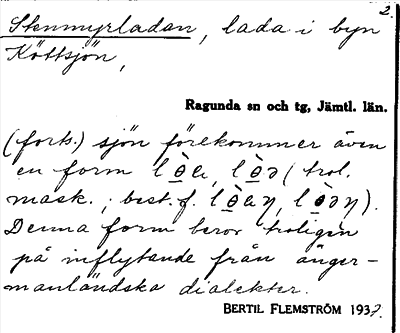 2.
Stenmyrladan, lada i byn
Köttsjön,
Ragunda sn och tg, Jämtl. län.
(forts.) sjön förekommer även
en form lò̲a, lò̲ə (trol.
mask.; best. f. lò̲aŋ, lò̲əŋ).
Denna form beror troligen
på inflytande från ånger-
manländska dialekter.
BERTIL FLEMSTRÖM 1937.